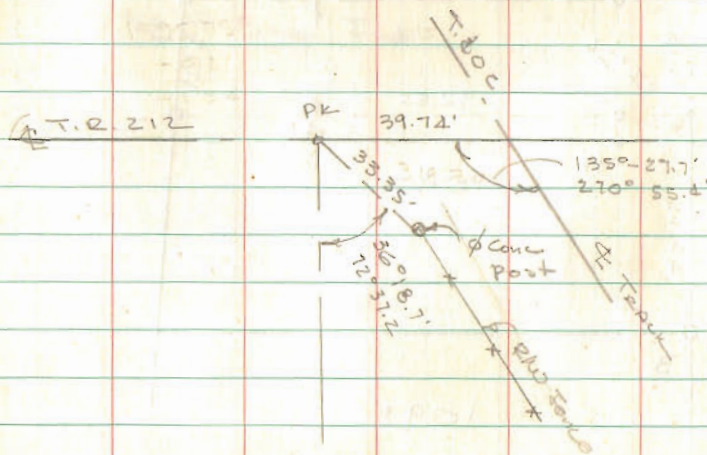 T. & O. C.
℄ T.R. 212
PK
39.74'
135°-27.7'
270° 55.4'
33.35'
36° 18.7'
72° 37.2
⌀ Conc
post
℄ Track
R/W Fence